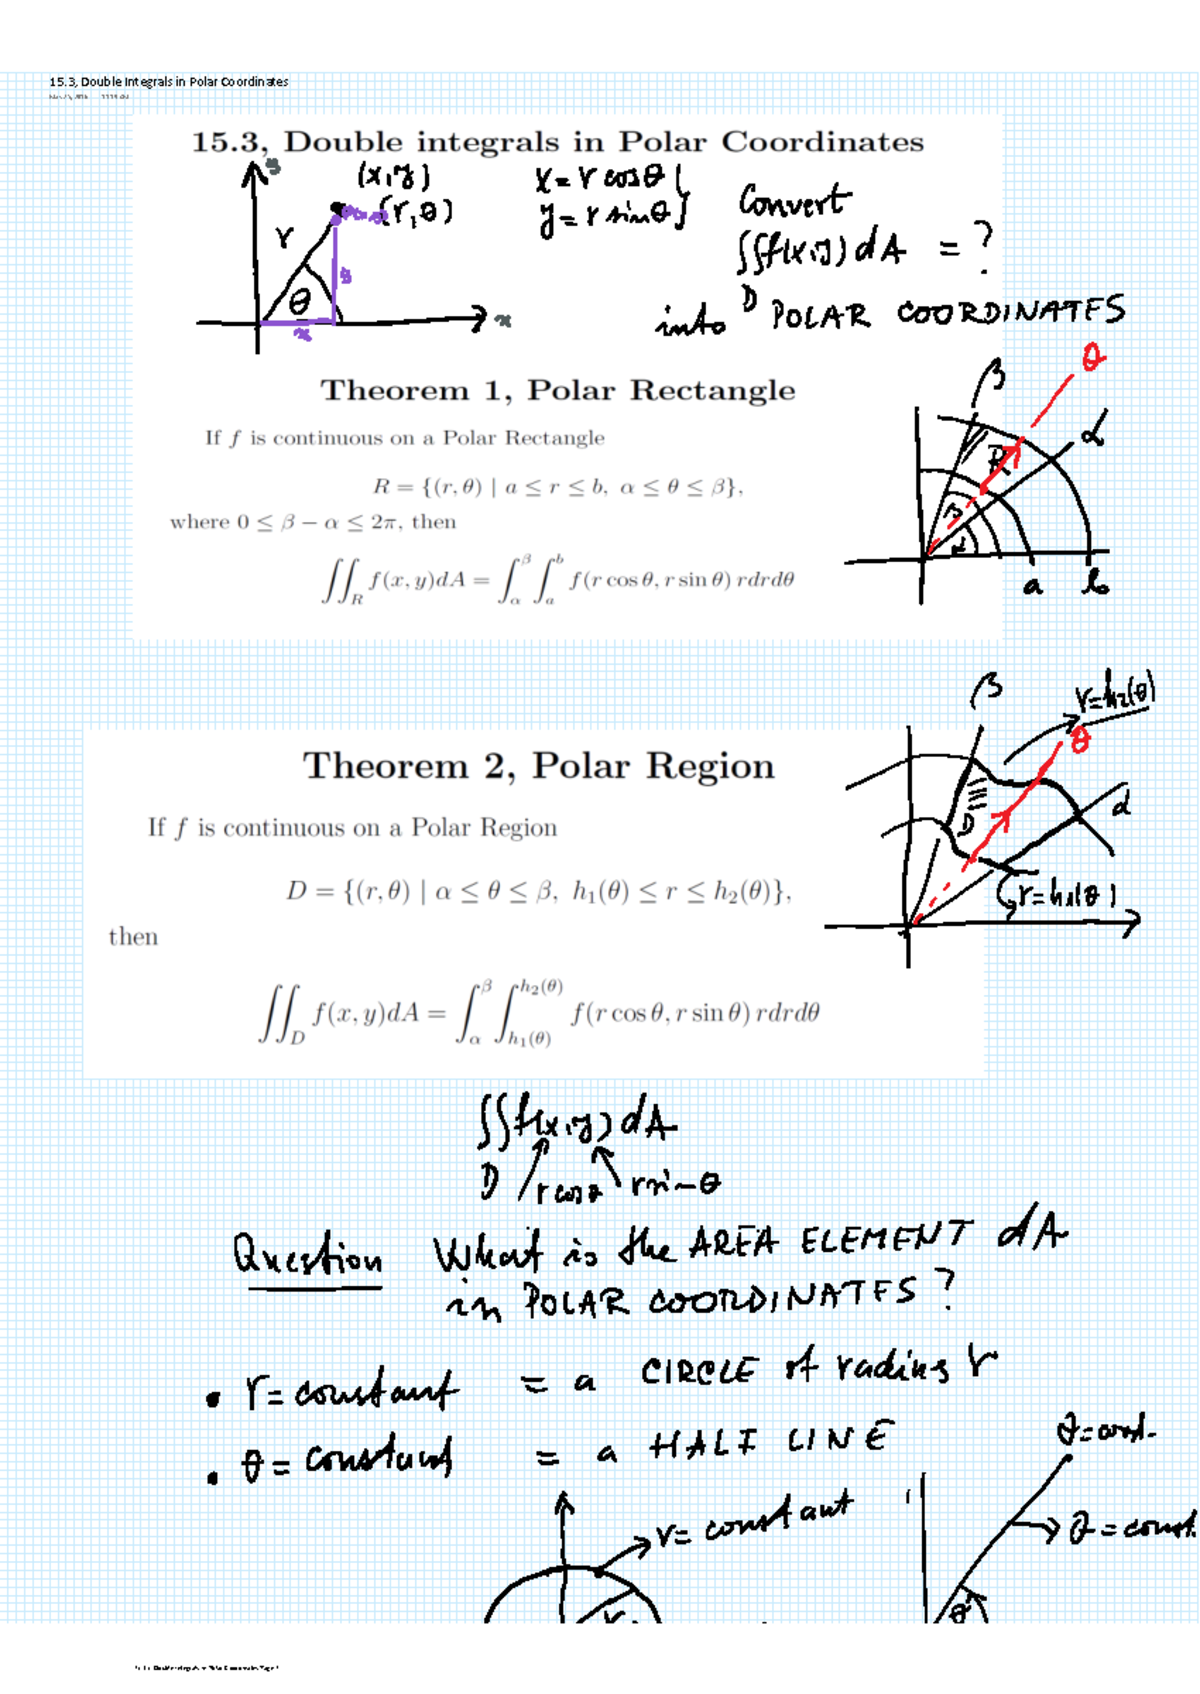 15.3, Double Integrals in Polar Coordinates
15.3, Double integrals in Polar Coordinates
y
(x,y)
(r,θ)
r
θ
y
x
x
x = r cosθ
y = r sinθ
Convert
∬f(x,y)dA = ?
D
into POLAR COORDINATES
Theorem 1, Polar Rectangle
If f is continuous on a Polar Rectangle
R = {(r, θ) | a ≤ r ≤ b, α ≤ θ ≤ β},
where 0 ≤ β − α ≤ 2π, then
∬_R f(x, y)dA = ∫_α^β ∫_a^b f(r cos θ, r sin θ) rdrdθ
β
θ
α
R
β
α
a
b
Theorem 2, Polar Region
If f is continuous on a Polar Region
D = {(r, θ) | α ≤ θ ≤ β, h₁(θ) ≤ r ≤ h₂(θ)},
then
∬_D f(x, y)dA = ∫_α^β ∫_{h₁(θ)}^{h₂(θ)} f(r cos θ, r sin θ) rdrdθ
β
r=h₂(θ)
θ
α
D
r=h₁(θ)
∬f(x,y)dA
D r cosθ r sinθ
Question What is the AREA ELEMENT dA
in POLAR COORDINATES?
• r = constant = a CIRCLE of radius r
• θ = constant = a HALF LINE
r = constant
r
θ=const.
θ = const.
θ